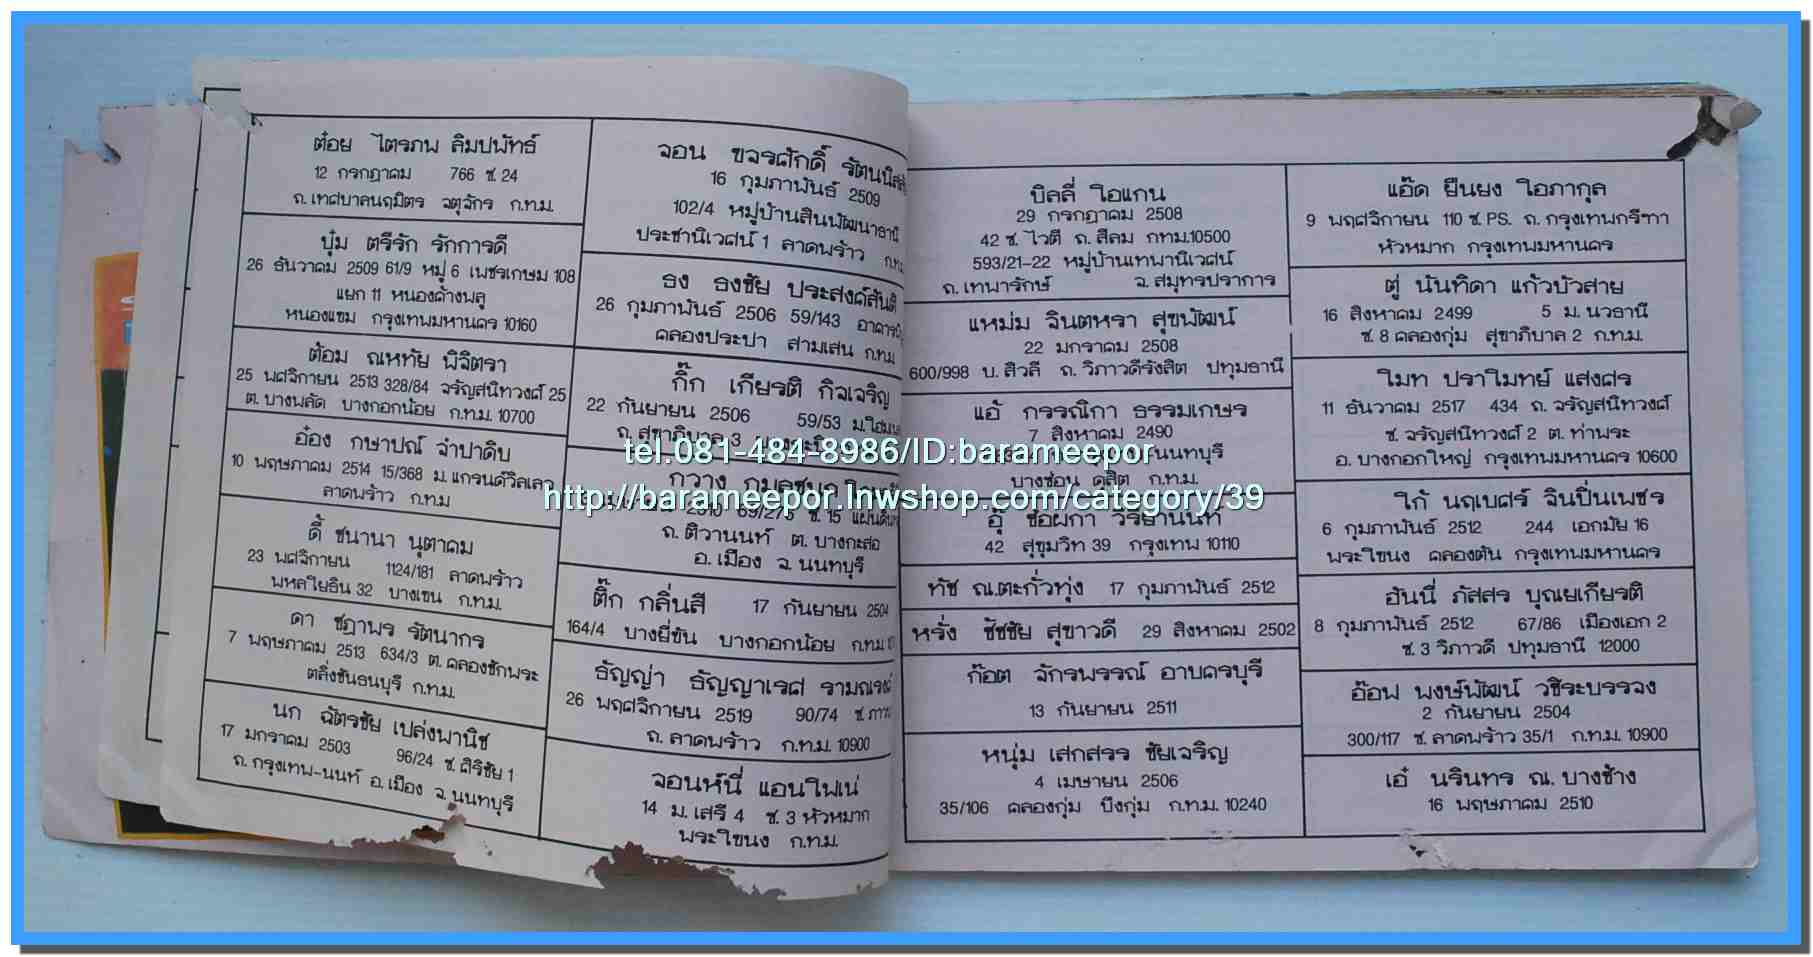 ต๋อย ไตรภพ ลิมปพัทธ์
12 กรกฎาคม 766 ซ. 24
ถ. เทศบาลนฤมิตร จตุจักร ก.ท.ม.
ปุ๋ม ตรีรัก รักการดี
26 ธันวาคม 2509 61/9 หมู่ 6 เพชรเกษม 108
แยก 11 หนองค้างพลู
หนองแขม กรุงเทพมหานคร 10160
ต้อม ณหทัย พิจิตรา
25 พศจิกายน 2513 328/84 จรัญสนิทวงศ์ 25
ต. บางพลัด บางกอกน้อย ก.ท.ม. 10700
อ๋อง กษาปณ์ จำปาดิบ
10 พฤษภาคม 2514 15/368 ม. แกรนด์วิลเลว
ลาดพร้าว ก.ท.ม
ดี้ ชนานา นุตาคม
23 พศจิกายน 1124/181 ลาดพร้าว
พหลโยธิน 32 บางเขน ก.ท.ม.
ดา ชฎาพร รัตนากร
7 พฤษภาคม 2513 634/3 ต. คลองชักพระ
ตลิ่งชันธนบุรี ก.ท.ม.
นก ฉัตรชัย เปล่งพานิช
17 มกราคม 2503 96/24 ซ. ศิริชัย 1
ถ. กรุงเทพ-นนท์ อ. เมือง จ. นนทบุรี
จอน ขจรศักดิ์
16 กุมภาพันธ์ 2509
102/4 หมู่บ้านสินพัฒนาธานี
ประชานิเวศน์ 1 ลาดพร้าว ก.ท.ม
ธง ธงชัย ประสงค์สันติ
26 กุมภาพันธ์ 2506 59/143
คลองประปา สามเสน ก.ท.ม
กิ๊ก เกียรติ กิจเจริญ
22 กันยายน 2506 59/53
ถ. สุขาภิบาล 3
กวาง
2510 69/273 ซ. 15
ถ. ติวานนท์ ต. บางกะสอ
อ. เมือง จ. นนทบุรี
ติ๊ก กลิ่นสี 17 กันยายน 2504
164/4 บางยี่ขัน บางกอกน้อย ก.ท.ม
ธัญญ่า ธัญญาเรศ รามณรงค์
26 พฤศจิกายน 2519 90/74
ถ. ลาดพร้าว ก.ท.ม. 10900
จอนห์นี่ แอนโฟเน่
14 ม. เสรี 4 ซ. 3 หัวหมาก
พระโขนง ก.ท.ม.
บิลลี่ โอแกน
29 กรกฎาคม 2508
42 ซ. ไวตี ถ. สีลม กทม. 10500
593/21-22 หมู่บ้านเทพานิเวศน์
ถ. เทพารักษ์ จ. สมุทรปราการ
แหม่ม จินตหรา สุขพัฒน์
22 มกราคม 2508
600/998 บ. สิวลี ถ. วิภาวดีรังสิต ปทุมธานี
แอ้ กรรณิกา ธรรมเกษร
7 สิงหาคม 2490
นนทบุรี
บางซ่อน ดุสิต ก.ท.ม.
อุ๊ ช่อผกา วิริยานนท์
42 สุขุมวิท 39 กรุงเทพ 10110
ทัช ณ.ตะกั่วทุ่ง 17 กุมภาพันธ์ 2512
หรั่ง ชัชชัย สุขาวดี 29 สิงหาคม 2502
ก๊อต จักรพรรณ์ อาบครบุรี
13 กันยายน 2511
หนุ่ม เสกสรร ชัยเจริญ
4 เมษายน 2506
35/106 คลองกุ่ม บึงกุ่ม ก.ท.ม. 10240
แอ๊ด ยืนยง โอภากุล
9 พฤศจิกายน 110 ซ. PS. ถ. กรุงเทพกรีฑา
หัวหมาก กรุงเทพมหานคร
ตู่ นันทิดา แก้วบัวสาย
16 สิงหาคม 2499 5 ม. นวธานี
ซ. 8 คลองกุ่ม สุขาภิบาล 2 ก.ท.ม.
โมท ปราโมทย์ แสงศร
11 ธันวาคม 2517 434 ถ. จรัญสนิทวงศ์
ซ. จรัญสนิทวงศ์ 2 ต. ท่าพระ
อ. บางกอกใหญ่ กรุงเทพมหานคร 10600
โก้ นฤเบศร์ จินปิ่นเพชร
6 กุมภาพันธ์ 2512 244 เอกมัย 16
พระโขนง คลองตัน กรุงเทพมหานคร
ฮันนี่ ภัสสร บุณยเกียรติ
8 กุมภาพันธ์ 2512 67/86 เมืองเอก 2
ซ. 3 วิภาวดี ปทุมธานี 12000
อ๊อฟ พงษ์พัฒน์ วชิระบรรจง
2 กันยายน 2504
300/117 ซ. ลาดพร้าว 35/1 ก.ท.ม. 10900
เอ๋ นรินทร ณ. บางช้าง
16 พฤษภาคม 2510
tel.081-484-8986/ID:barameepor
http://barameepor.lnwshop.com/category/39